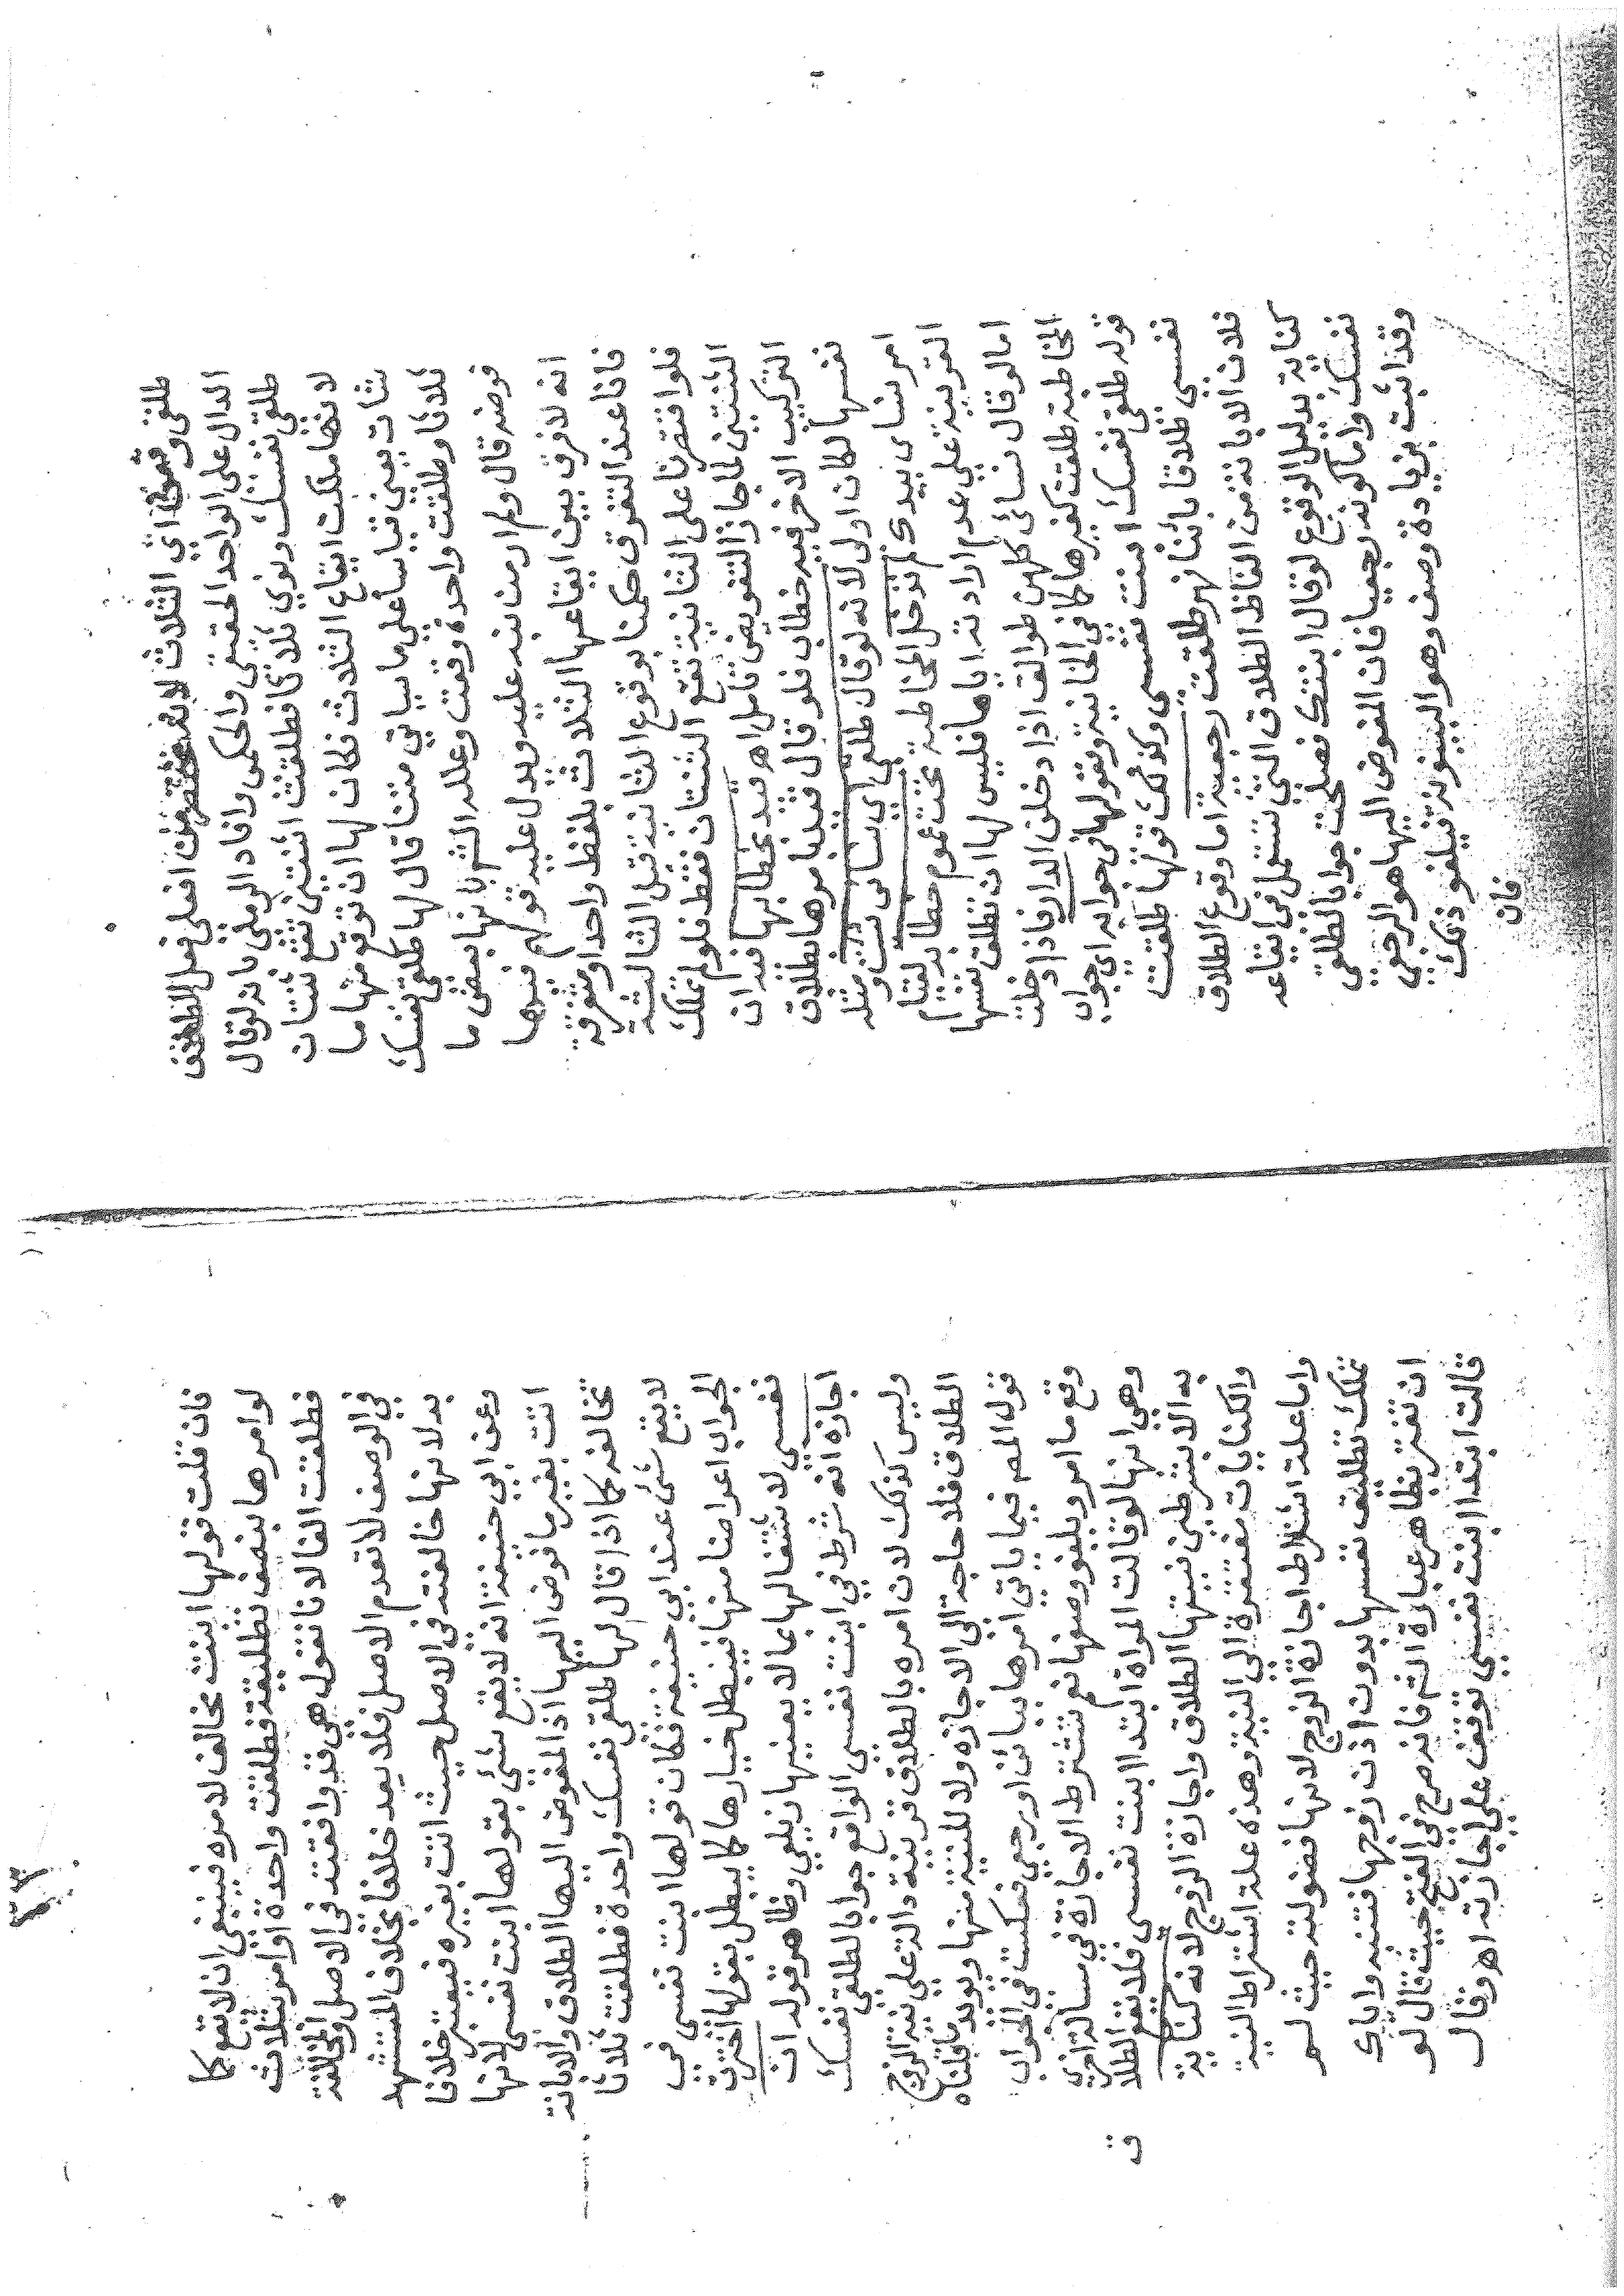 طلقي وقعن اي الثلاث لانه مختصر من افعلي فعل الطلاق
الدال على الواحد الحقيقي والحكمي وافاد الرملي بانه لو قال
طلقي نفسك ونوى ثلاثا فطلقت اثنتين تقع ثنتان
لانها ملكت ايقاع الثلاث فكان لها ان توقع منها ما
شات يعني قياسا على ما سياتي متنا قال لها طلقي نفسك
ثلاثا وطلقت واحدة وقعت وعلله الشم بانها بعض ما
فوضه قال ولم ار من نبه عليه ويدل عليه قولهم فيها
انه لا فرق بين ايقاعها الثلاث بلفظ واحد او متفرقة
فانا عند التفرق حكمنا بوقوع الثانية قبل الثالثة
فلو اقتصرنا على الثانية تقع الثنتان فقط فلو لم تملك
الثنتين لما جاز التفويض تامل اهـ قيد بخطابها فدان
التركيب الاخر فيه خطاب فلو قال قيدنا مرها بطلاق
نفسها لكان اولى لانه لو قال طلقي اي نساي شئت ومثله
امر نساي بيدك لم تدخل المخاطبة تحت عموم خطابه لقيام
القرينة على عدم ارادته اياها فليس لها ان تطلق نفسها
اما لو قال نسائي كلهن طوالق اذا دخلن الدار فاذا دخلت
المخاطبة طلقت كغيرها كما في الخانية وقولها في جوابه اي جواب
قوله طلقي نفسك ابنت نفسي وكذلك قولها طلقت
نفسي طلاقا بائنا نهر طلقت رجعية اما وقوع الطلاق
فلان الابانة من الفاظ الطلاق التي تستعمل في ايقاعه
كناية بدليل الوقوع لو قال ابنتك فصلحت جوابا لطلقي
نفسك واما كونه رجعيا فان المفوض اليها هو الرجعي
وقد اتت بزيادة وصف وهو البينونة فيلغو ذلك
فان
فان قلت قولها ابنت مخالف لامره فينبغي ان لا تقع كما
لو امرها بنصف تطليقة فطلقت واحدة او امر بثلاث
فطلقت الفا لانا نقول هي قد وافقته في الاصل والمخالفة
في الوصف لا تعدم الاصل فلا يعد خلافا بخلاف المستشهد
به لانها خالفته في الاصل حيث اتت بغيره فيعتبر خلافا
وعن ابي حنيفة انه لا يقع شئ بقولها ابنت نفسي لانها
اتت بغير ما فوض اليها اذ المفوض اليها الطلاق والابانة
تخالفه كما اذا قال لها طلقي نفسك واحدة فطلقت ثلاثا
لا يقع شئ عند ابي حنيفة فكان قولها ابنت نفسي في
الجواب اعراضا منها فيبطل خيارها كما يبطل بقولها اخترت
نفسي لاشتغالها بما لا يعنيها زيلعي وظاهر قوله ان
اجازه انه شرط في ابنت نفسي الواقع جوابا لطلقي نفسك
وليس كذلك لان امره بالطلاق قرينة دالة على نية الزوج
الطلاق فلا حاجة الى الاجازة ولا للنية منها ويويد ما قلناه
قول المص فيما ياتي امرها ببائن او رجعي فعكست في الجواب
وقع ما امر ويلغو وصفها نعم تشترط الاجازة في مسالة اخرى
وهي انها لو قالت المراة ابتدا ابنت نفسي فلا تقع الطلا
ق
به الا بشرطين نيتها الطلاق واجازة الزوج لانه كناية
والكنايات مفتقرة الى النية وهذه علة اشتراط النية
واما علة اشتراط اجازة الزوج لانها فضولية حيث لم
تملك تطليق نفسها بدون اذن زوجها فتنبه واياك
ان تغتر بظاهر عبارة الشم فانه صرح في الفتح حيث قال لو
قالت ابتدا ابنت نفسي توقف على اجازته اهـ وقال